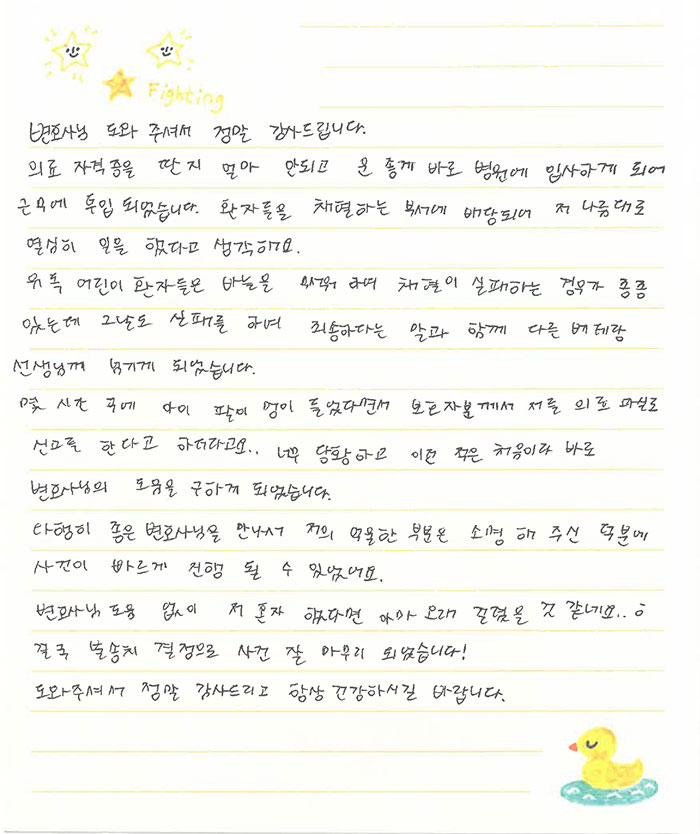 Fighting
변호사님 도와 주셔서 정말 감사드립니다.
의료 자격증을 딴지 얼마 안되고 운 좋게 바로 병원에 입사하게 되어
근무에 투입 되었습니다. 환자들을 채혈하는 부서에 배당되어 저 나름대로
열심히 일을 했다고 생각해요.
유독 어린이 환자들은 바늘을 무서워 하며 채혈이 실패하는 경우가 종종
있는데 그날도 실패를 하며 죄송하다는 말과 함께 다른 베테랑
선생님께 넘기게 되었습니다.
몇 시간 후에 아이 팔에 멍이 들었다면서 보호자분께서 저를 의료 과실로
신고를 한다고 하더라고요.. 너무 당황하고 이런 적은 처음이라 바로
변호사님의 도움을 구하게 되었습니다.
다행히 좋은 변호사님을 만나서 저의 억울한 부분은 소명 해 주신 덕분에
사건이 빠르게 진행 될 수 있었어요.
변호사님 도움 없이 저 혼자 했다면 아마 오래 걸렸을 것 같네요..
결국 불송치 결정으로 사건 잘 마무리 되었습니다!
도와주셔서 정말 감사드리고 항상 건강하시길 바랍니다.